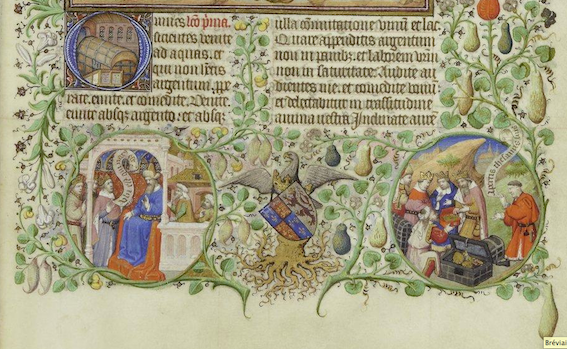 Omnes lco pma
sicientes venite
ad aquas. et
qui non hetis
argentum. ppe
rate. emite. et comedite. Venite
emite absqꝫ argento. et absqꝫ
ulla comutatione vinum et lac
Quare appenditis argentum
non in panibꝫ: et laborem vrm
non in saturitate. Audite au
dientes me. et comedite bonum
et delectabitur in crassitudine
anima vestra. Inclinate aure
Bréviai